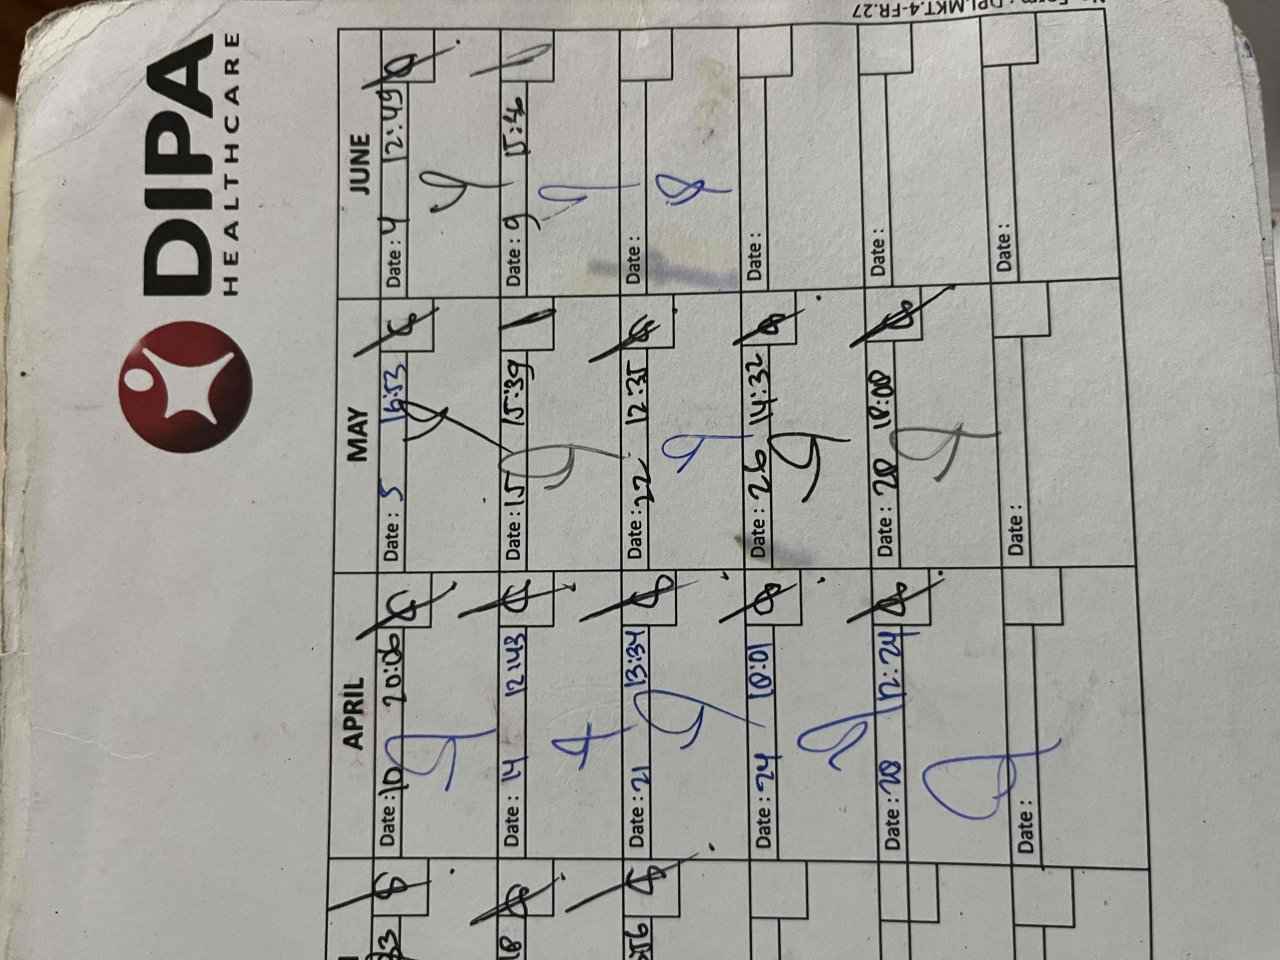 DIPA
HEALTHCARE
APRIL MAY JUNE
Date : 10 20:06 Date : 5 16:53 Date : 4 12:49
Date : 14 12:43 Date : 15 15:39 Date : 9
Date : 21 13:34 Date : 22 12:35 Date :
Date : 24 18:01 Date : 26 14:32 Date :
Date : 28 12:24 Date : 28 18:00 Date :
Date : Date : Date :
DPI.MKT.4-FR.27